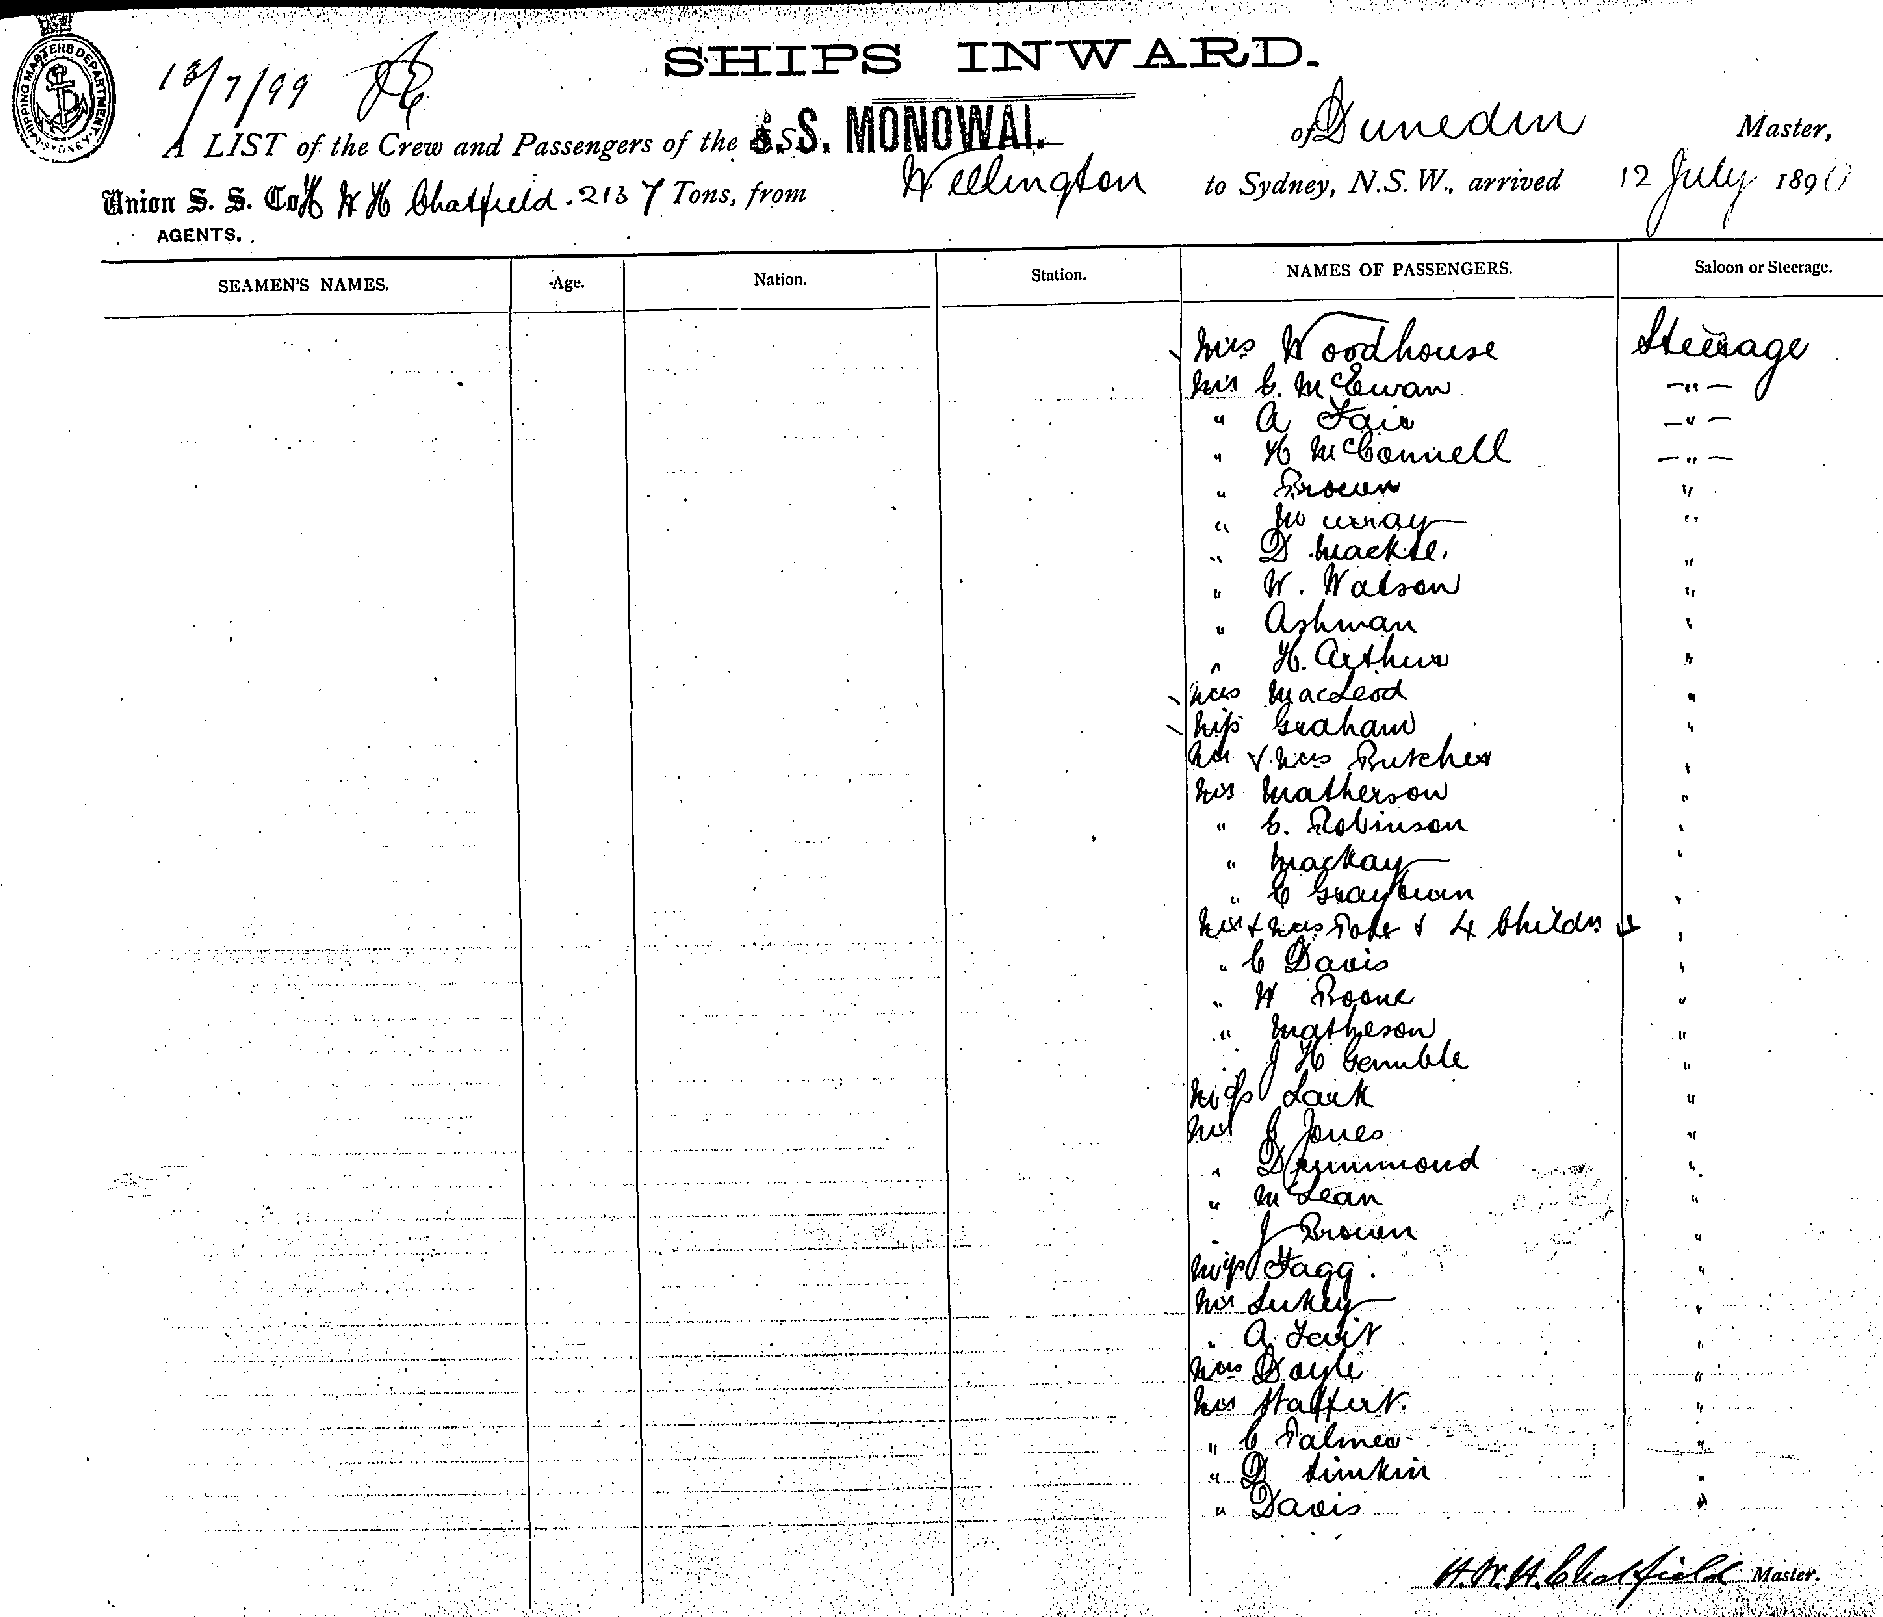 SHIPPING MASTERS DEPARTMENT. SYDNEY
13/7/99
SHIPS INWARD.
A LIST of the Crew and Passengers of the S.S. MONOWAI. of Dunedin Master,
Union S. S. Co H W H Chatfield. 2137 Tons, from Wellington to Sydney, N.S.W., arrived 12 July 189
AGENTS.
SEAMEN'S NAMES. Age. Nation. Station. NAMES OF PASSENGERS. Saloon or Steerage.
Mrs Woodhouse Steerage
Mr C. McEwan —"—
" A Fair —"—
" H McConnell —"—
" Brown "
" Murray "
" D Mackie. "
" W. Watson "
" Ashman "
" H. Arthur "
Mrs MacLeod "
Miss Graham "
Mr & Mrs Butcher "
Mr Matherson "
" C. Robinson "
" Mackay "
" C "
Mr & Mrs & 4 Childrn "
" C Davis "
" W Boone "
" Matheson "
" J H Gemmble "
Miss Lark "
Mr J Jones "
" Drummond "
" McLean "
" J Brown "
Miss Fagg. "
Mr Lukey "
" A "
Mrs Doyle "
Mr "
" C Palmer "
" D Simkin "
" Davis "
H. W. H. Chatfield Master.